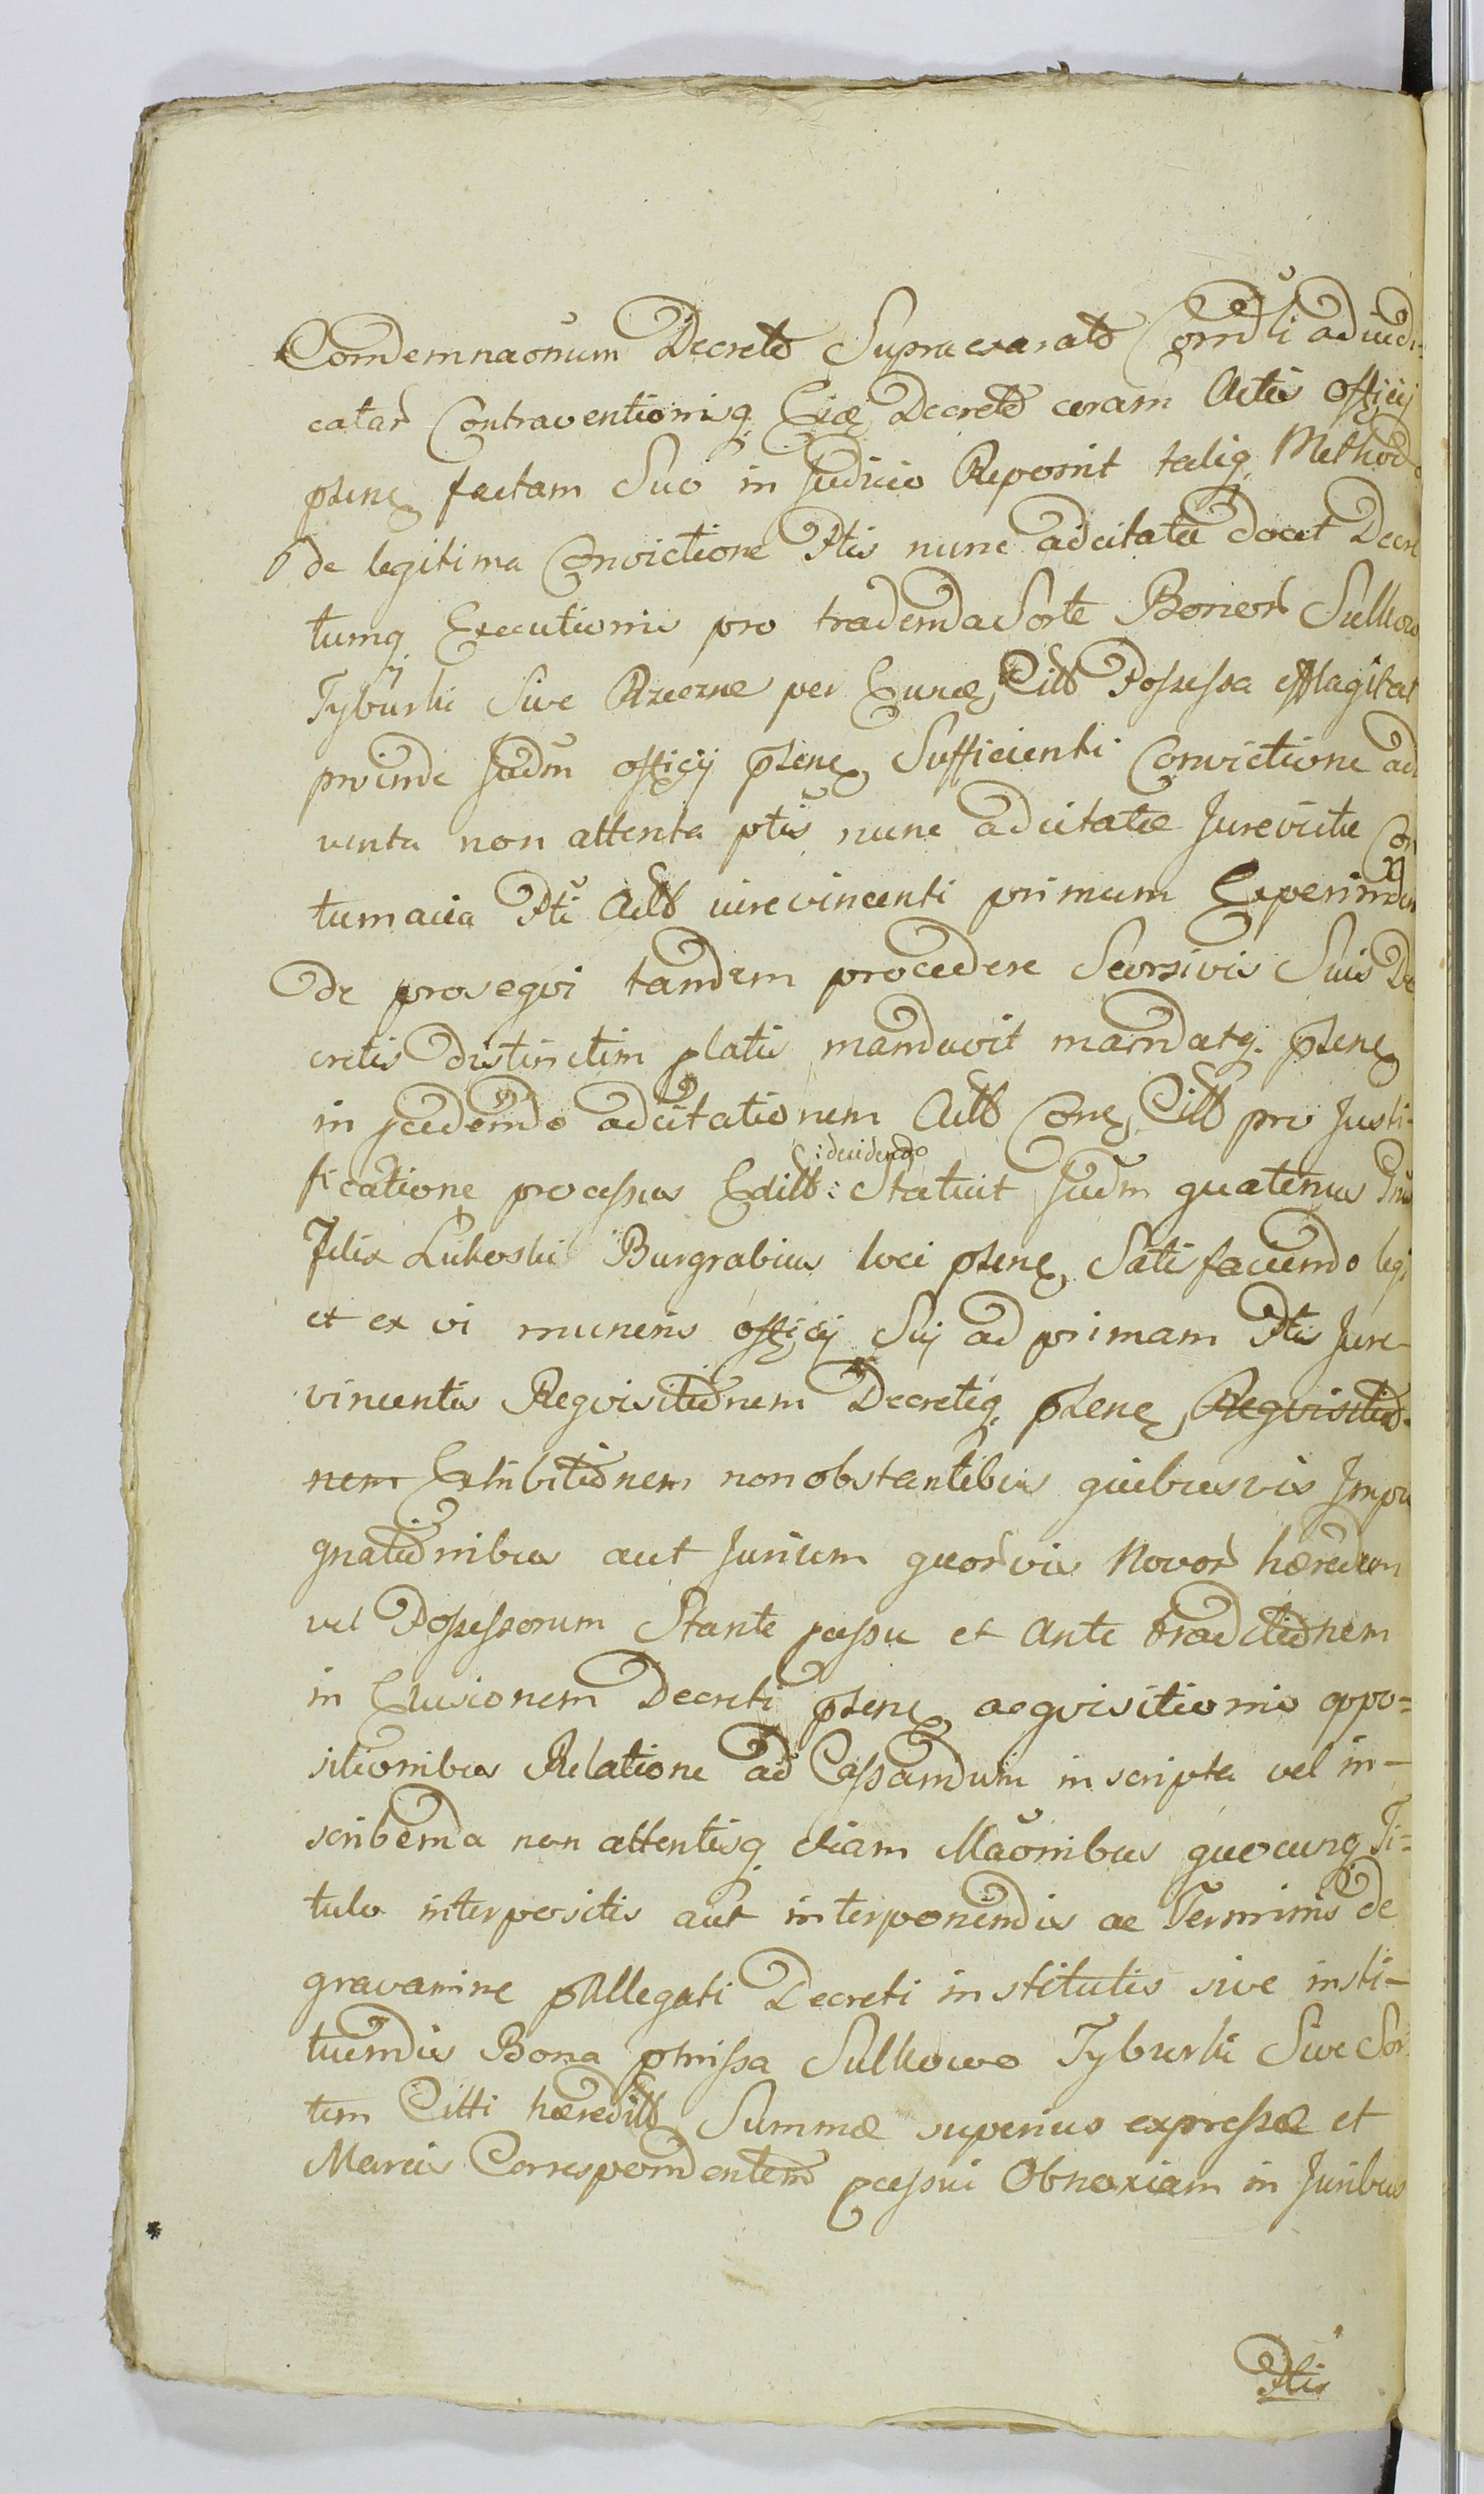 Condemnaonum Decreto Supraexarato Comdti adiudi-
catar Contraventionisq Eiae Decreto coram Actis officij
psene factam Suo in Judicio Reponit taliq Methodo
de legitima Convictione Ptis nunc adcitatae docet Decre
tumq Executionis pro tradenda Sorte Bonor Sulkowo
Tyburki Sive Rzeczne per Eunde Citt Possessa efflagitat
proinde Judm officij psene Sufficienti Convictione ad
venta non attenta ptis nunc adcitatae Jurevictae Con
tumacia Pti Actt jurevincenti primum Experimen
de prosequi tandem procedere Seorsivis Suis De
cretis distinctim platis mandavit mandatq. psene
in scedendo adcitationem Actt Cone Citt pro Justi-
ficatione processus Editt: :decidendo Statuit Judm quatenus Dnus
Felix Lukoski Burgrabius loci psene Satisfaciendo legi
et ex vi muneris officij Sui ad primam Ptis Jure-
vincentis Reqvisitionem Decretiq psene Reqvisitio-
nem Exhibitionem non obstantibus quibusvis Impu
gnationibus aut Jurium quorvis Novor haeredum
vel Possessorum Stante passu et Ante traditionem
in Elusionem Decreti psene acqvisitionis oppo=
sitionibus Relatione ad Cassandum inscripta vel in-
scribenda non attentisq etiam Maonibus quocunq Ti=
tulo interpositis aut interponendis ac Terminis de
gravamine pAllegati Decreti institutis sive insti-
tuendis Bona pmissa Sulkowo Tyburki Sive Sor
tem Citti haereditt Summae superius expressae et
Marcis Correspondentem pcessui Obnoxiam in Juribus
Ptis